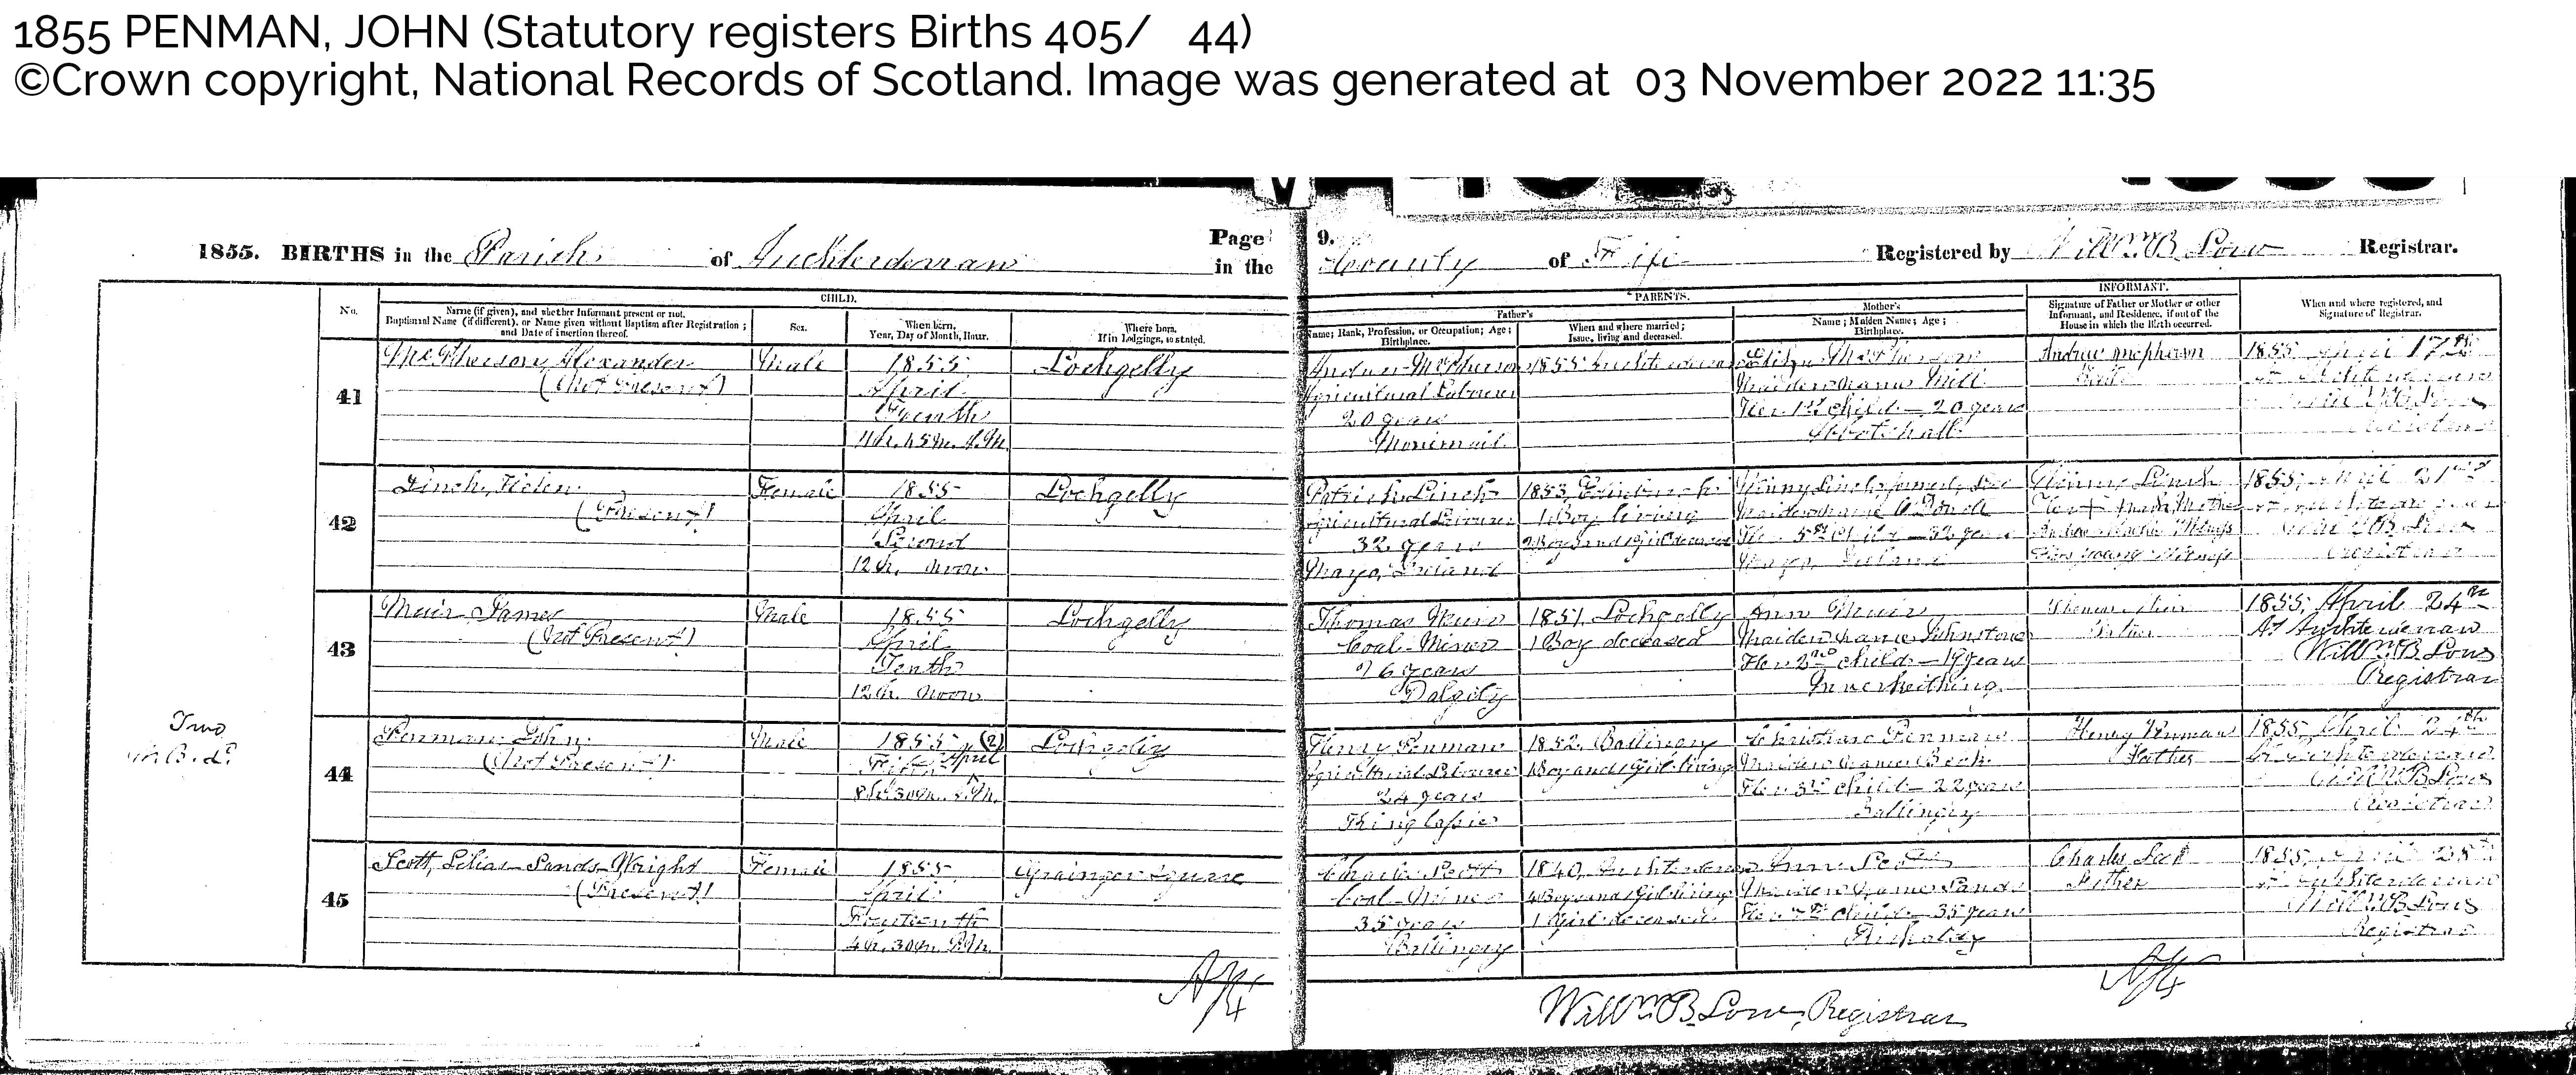 1855 PENMAN, JOHN (Statutory registers Births 405/ 44)
©Crown copyright, National Records of Scotland. Image was generated at 03 November 2022 11:35
1855. BIRTHS in the Parish of Auchterderran Page 9.
in the County of Fife Registered by Willm. B. Low Registrar.
No.
CHILD.
Name (if given), and whether Informant present or not.
Baptismal Name (if different), or Name given without Baptism after Registration;
and Date of insertion thereof.
Sex.
When born.
Year, Day of Month, Hour.
Where born.
If in Lodgings, so stated.
PARENTS.
Father's
Name; Rank, Profession, or Occupation; Age;
Birthplace.
When and where married;
Issue, living and deceased.
Mother's
Name; Maiden Name; Age;
Birthplace.
INFORMANT.
Signature of Father or Mother or other
Informant, and Residence, if out of the
House in which the Birth occurred.
When and where registered, and
Signature of Registrar.
41
McPherson, Alexander
(Not Present)
Male
1855
April
11h. 45m.
Lochgelly
Andrew McPherson
Agricultural Labourer
20 years
Monimail
1855 Auchterderran
McPherson
Maiden name Mill
Her 1st child - 20 years
Abbotshall
Andrew McPherson
1855 April 17th
42
Linch, Helen
(Present)
Female
1855
April
Second
12h. noon
Lochgelly
Patrick Linch
Agricultural Labourer
32 years
Mayo, Ireland
1853, Edinburgh
1 Boy living
Maiden name
Her 5th child - 32 years
Mayo, Ireland
Linch
Her + mark, Mother
Witness
1855, April 21st
Registrar
43
Muir, James
(Not Present)
Male
1855
April
Tenth
12h. noon
Lochgelly
Thomas Muir
Coal Miner
26 years
Dalgety
1851, Lochgelly
1 Boy deceased
Ann Muir
Maiden name Johnston
Her 2nd child - 19 years
Inverkeithing
Thomas Muir
Father
1855, April 24th
At Auchterderran
Willm. B. Low
Registrar
Two
44
Penman, John
(Not Present)
Male
1855 (2)
April
8h. 30m.
Lochgelly
Henry Penman
Agricultural Labourer
24 years
Kinglassie
1852, Ballingry
1 Boy and 1 Girl living
Christian Penman
Maiden name
Her 3rd child - 22 years
Ballingry
Henry Penman
Father
1855, April 24th
At Auchterderran
Willm. B. Low
Registrar
45
Scott, Lilias Sands Wright
(Present)
Female
1855
April
Fourteenth
4h. 30m. P.M.
Grainger Square
Charles Scott
Coal Miner
35 years
Ballingry
1840, Auchterderran
4 Boys and 1 Girl living
1 Girl deceased
Ann Scott
Maiden name Sands
Her 7th child - 35 years
Kirkcaldy
Charles Scott
Father
1855, April 28th
At Auchterderran
Willm. B. Low
Registrar
Willm. B. Low, Registrar